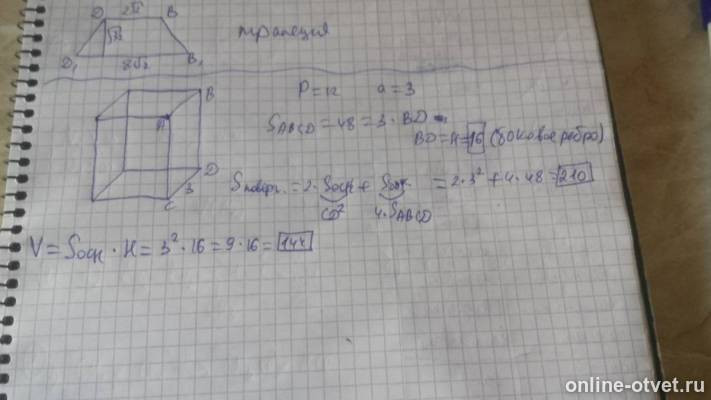 D 2√2 B
√3
D₁ 8√2 B₁
трапеция
P = 12 a = 3
B
A
D
3
C
S_ABCD = 48 = 3 · BD
BD = H = 16 (боковое ребро)
Sповерх. = 2 · Sосн + Sбок. = 2 · 3² + 4 · 48 = 210
CD² 4 · S_ABCD
V = Sосн · H = 3² · 16 = 9 · 16 = 144
online-otvet.ru